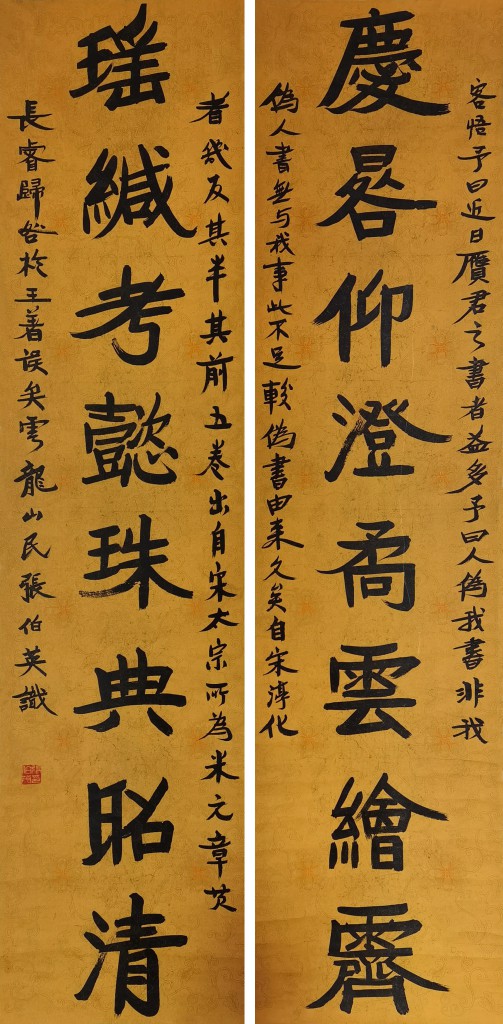 客語予曰近日贋君之書者益多予曰人偽我書非我
慶晷仰澄矞雲繪霽
偽人書無与我事此不足較偽書由来久矣自宋淳化
者幾及其半其前五卷出自宋太宗所為米元章黄
瑤緘考懿珠典昭清
長睿歸咎於王著誤矣雲龍山民張伯英識